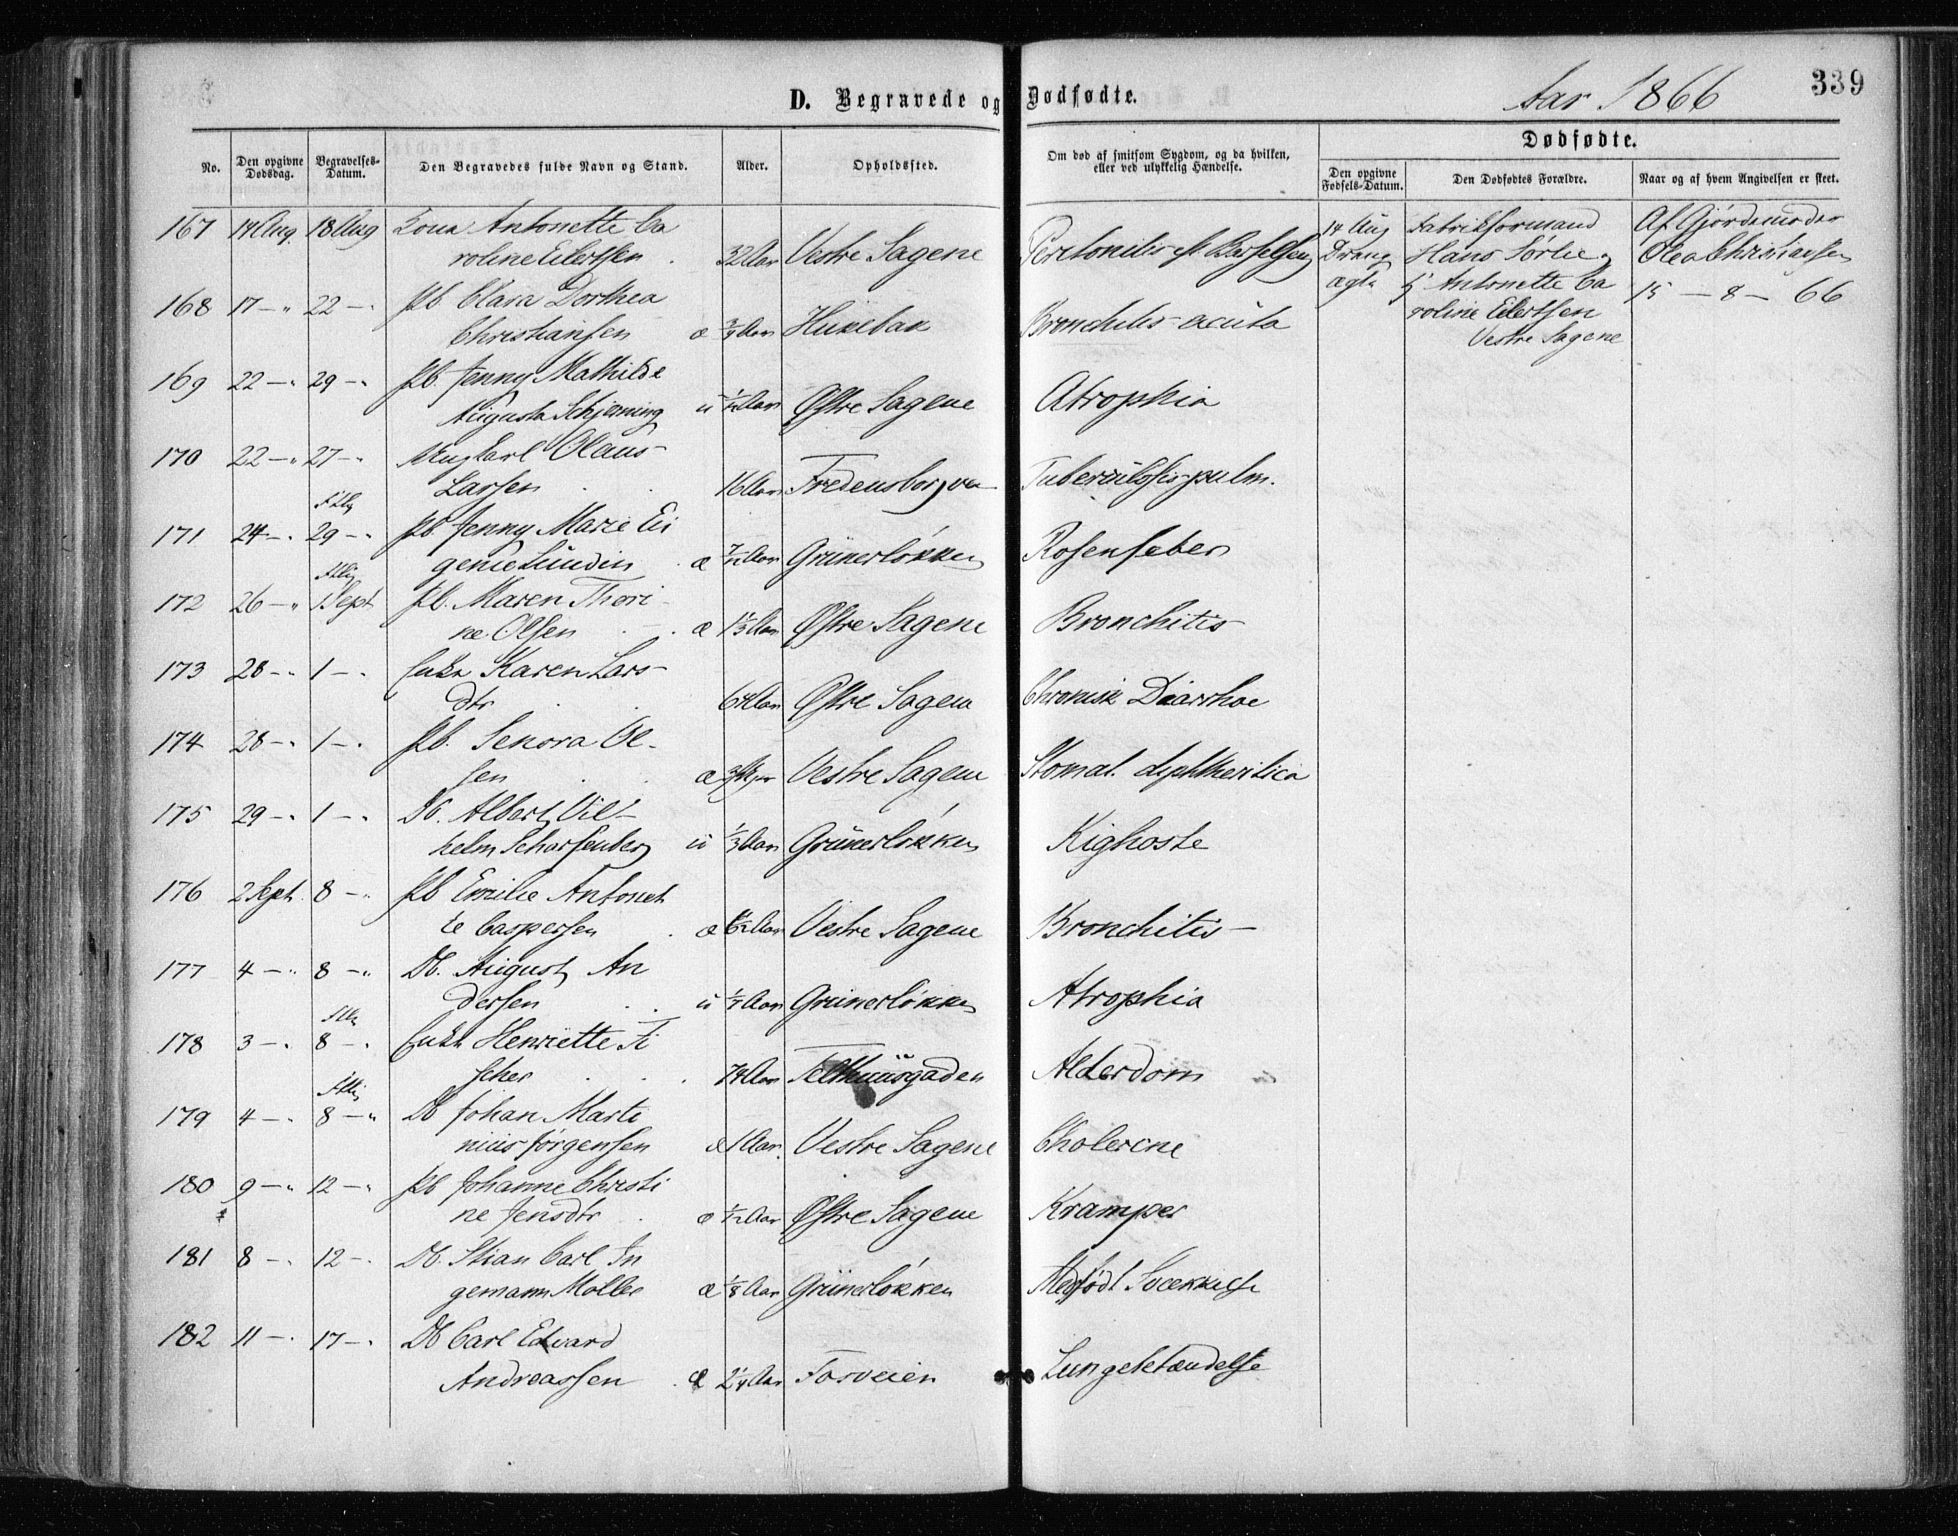 D. Begravede og Dødfødte. Aar 1866 339
No. Den opgivne Dødsdag. Begravelses-Datum. Den Begravedes fulde Navn og Stand. Alder. Opholdssted. Om død af smitsom Sygdom, og da hvilken, eller ved ulykkelig Hændelse. Dødfødte.
Den opgivne Fødsels-Datum. Den Dødfødtes Forældre. Naar og af hvem Angivelsen er skeet.
167 14 Aug. 18 Aug Kona Antonette Ca 14 Aug Fabrikformand Af Gjordemoder
roline Eilertsen . 32 Aar Vestre Sagene Peritonitis Dreng Hans Sørlie Olea Christiansen
ægte Antonette Ca 15 — 8 — 66
168 17 — " 22 — " Pb Clara Dorthea roline Eilertsen
Christiansen æ 3/4 Aar Bronchitis acuta Vestre Sagene
169 22 — " 29 — " Pb. Jenny Mathilde
Augusta Schjerning u Aar Østre Sagene Atrophia
170 22 — " 27 — " Ung Karl Olaus
Larsen . . 16 Aar Fredensborgv Tuberculosis pulm.
171 24 — " 29 — " Pb. Jenny Marie Eu
genie Lundin . æ 7/12 Aar Grünerløkken Rosenfeber
172 26 — " 1 Sept Pb. Maren Thori
ne Olsen . . æ 1 1/3 Aar Østre Sagene Bronchitis
173 28 — " 1 — " Enke Karen Lars
dtr . . 64 Aar Østre Sagene Chronisk Diarrhoe
174 28 — " 1 — " Pb. Senora Ol
sen . . æ Vestre Sagene Stomat. dyphtheritica
175 29 — " 1 — " Db. Albert Vil
helm Scharfenberg u 1/3 Aar Grünerløkken Kighoste
176 2 Sept. 8 — " Pb Emilie Antonet
te Caspersen . æ Aar Vestre Sagene Bronchitis
177 4 — " 8 — " Db. August An
dersen . . u Aar Grünerløkken Atrophia
178 3 — " 8 — " Enke Henriette Fi
scher . . . 74 Aar Telthuusgaden Alderdom
179 4 — " 8 — " Db Johan Marti
nius Jørgensen æ 1 Aar. Vestre Sagene Cholerine
180 9 — " 12 — " Pb Johanne Christi
ne Jensdtr . æ 1/12 Aar Østre Sagene Kramper
181 8 — " 12 — " Db. Stian Carl In
gemann Møller æ 1/8 Aar Grünerløkken Medfødt Svækkelse
182 11 — " 17 — " Db Carl Edvard
Andreassen . æ 2 1/4 Aar Fosveien Lungebetændelse